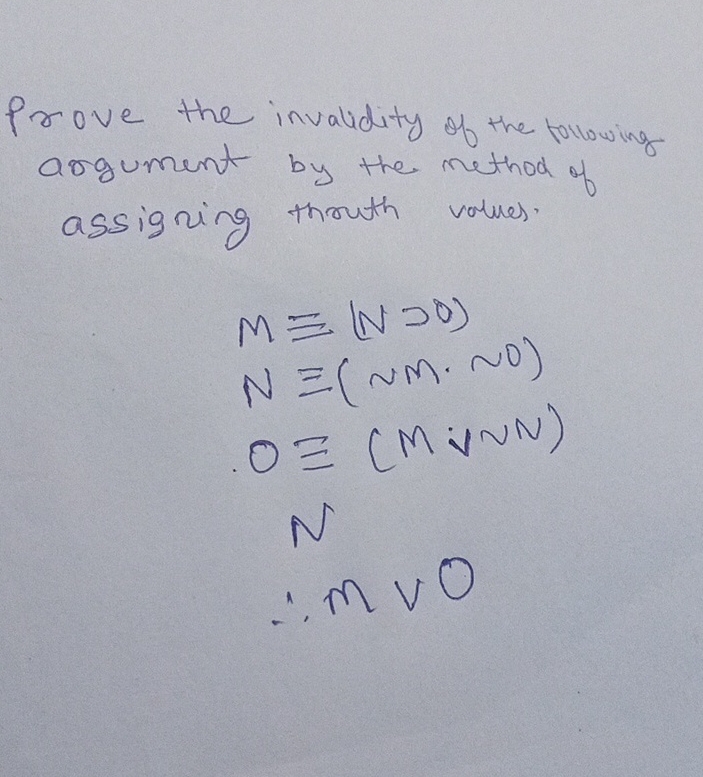 Prove the invalidity of the following
argument by the method of
assigning throuth values.
M ≡ (N ⊃ O)
N ≡ (~M · ~O)
O ≡ (M v ~N)
N
∴ M v O